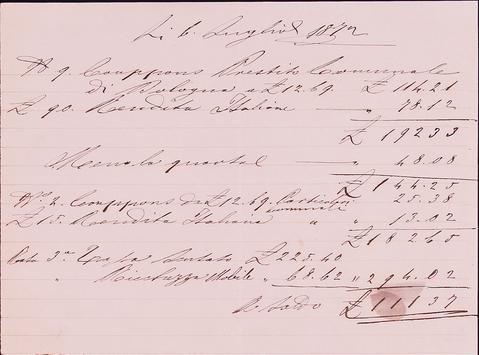 Li 6. Luglio 1872
N° 9. Couppons Prestito Comunale
di Bologna a £12.69. £ 114.21
£ 90. Rendita Italiana — „ 78.12
£ 19233
Meno la quarta — „ 48.08
£ 144.25
N° 2. Couppons da £12.69. Particolari 25.38
comunali
£15. Rendita Italiana „ „ 13.02
£ 18265
Rata 3ª Tassa £225.40
„ Ricchezza Mobile „ 68.62 „ 294.02
A Saldo £ 11137